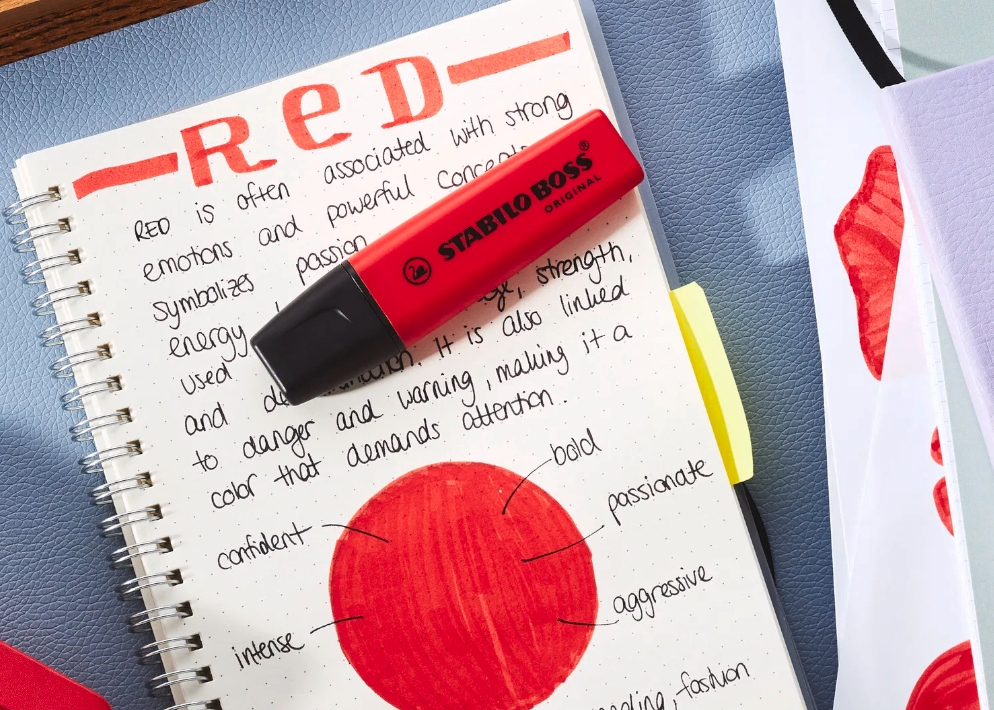 RED
RED is often associated with strong
emotions and powerful
symbolizes passion
energy strength,
used It is also linked
and
to danger and warning, making it a
color that demands attention.
STABILO BOSS®
ORIGINAL
bold
passionate
confident
aggressive
intense
fashion